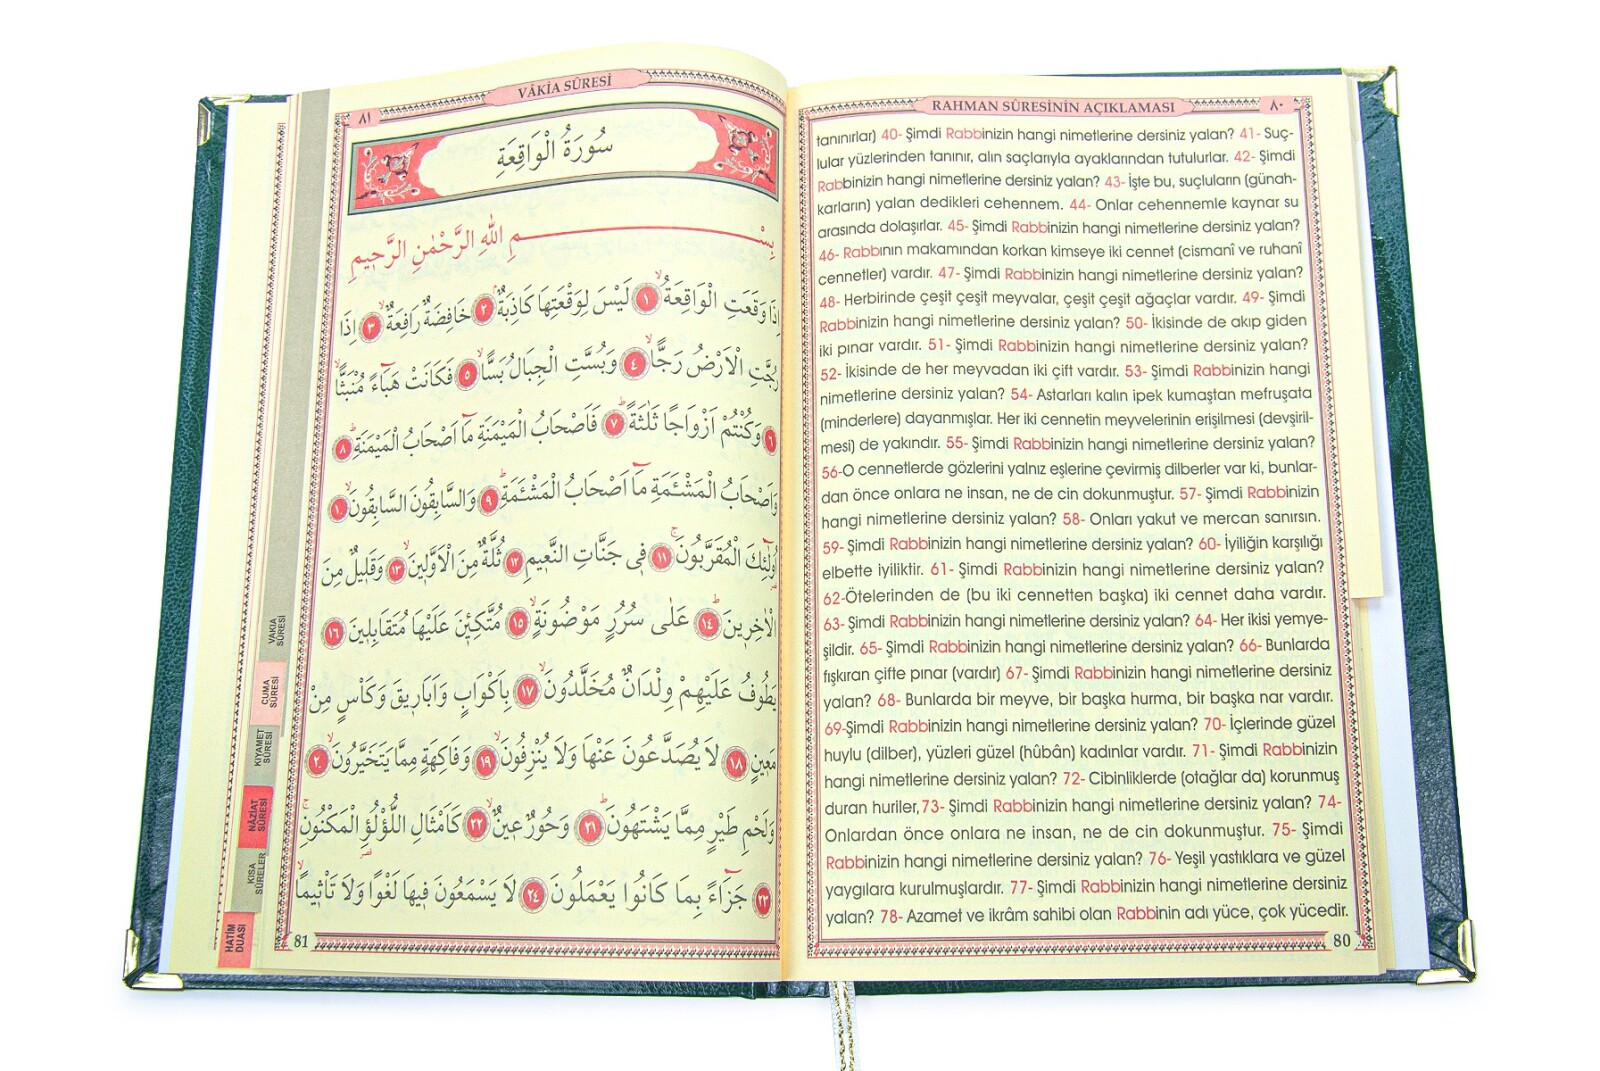 RAHMAN SÛRESİNİN AÇIKLAMASI
٨٠
tanınırlar) 40- Şimdi Rabbinizin hangi nimetlerine dersiniz yalan? 41- Suç-
lular yüzlerinden tanınır, alın saçlarıyla ayaklarından tutulurlar. 42- Şimdi
Rabbinizin hangi nimetlerine dersiniz yalan? 43- İşte bu, suçluların (günah-
karların) yalan dedikleri cehennem. 44- Onlar cehennemle kaynar su
arasında dolaşırlar. 45- Şimdi Rabbinizin hangi nimetlerine dersiniz yalan?
46- Rabbının makamından korkan kimseye iki cennet (cismanî ve ruhanî
cennetler) vardır. 47- Şimdi Rabbinizin hangi nimetlerine dersiniz yalan?
48- Herbirinde çeşit çeşit meyvalar, çeşit çeşit ağaçlar vardır. 49- Şimdi
Rabbinizin hangi nimetlerine dersiniz yalan? 50- İkisinde de akıp giden
iki pınar vardır. 51- Şimdi Rabbinizin hangi nimetlerine dersiniz yalan?
52- İkisinde de her meyvadan iki çift vardır. 53- Şimdi Rabbinizin hangi
nimetlerine dersiniz yalan? 54- Astarları kalın ipek kumaştan mefruşata
(minderlere) dayanmışlar. Her iki cennetin meyvelerinin erişilmesi (devşiril-
mesi) de yakındır. 55- Şimdi Rabbinizin hangi nimetlerine dersiniz yalan?
56-O cennetlerde gözlerini yalnız eşlerine çevirmiş dilberler var ki, bunlar-
dan önce onlara ne insan, ne de cin dokunmuştur. 57- Şimdi Rabbinizin
hangi nimetlerine dersiniz yalan? 58- Onları yakut ve mercan sanırsın.
59- Şimdi Rabbinizin hangi nimetlerine dersiniz yalan? 60- İyiliğin karşılığı
elbette iyiliktir. 61- Şimdi Rabbinizin hangi nimetlerine dersiniz yalan?
62-Ötelerinden de (bu iki cennetten başka) iki cennet daha vardır.
63- Şimdi Rabbinizin hangi nimetlerine dersiniz yalan? 64- Her ikisi yemye-
şildir. 65- Şimdi Rabbinizin hangi nimetlerine dersiniz yalan? 66- Bunlarda
fışkıran çifte pınar (vardır) 67- Şimdi Rabbinizin hangi nimetlerine dersiniz
yalan? 68- Bunlarda bir meyve, bir başka hurma, bir başka nar vardır.
69-Şimdi Rabbinizin hangi nimetlerine dersiniz yalan? 70- İçlerinde güzel
huylu (dilber), yüzleri güzel (hûbân) kadınlar vardır. 71- Şimdi Rabbinizin
hangi nimetlerine dersiniz yalan? 72- Cibinliklerde (otağlar da) korunmuş
duran huriler,73- Şimdi Rabbinizin hangi nimetlerine dersiniz yalan? 74-
Onlardan önce onlara ne insan, ne de cin dokunmuştur. 75- Şimdi
Rabbinizin hangi nimetlerine dersiniz yalan? 76- Yeşil yastıklara ve güzel
yaygılara kurulmuşlardır. 77- Şimdi Rabbinizin hangi nimetlerine dersiniz
yalan? 78- Azamet ve ikrâm sahibi olan Rabbinin adı yüce, çok yücedir.
80
VÂKİA SÛRESİ
٨١
سُورَةُ الْوَاقِعَةِ
بِسْمِ اللهِ الرَّحْمٰنِ الرَّحِيمِ
اِذَا وَقَعَتِ الْوَاقِعَةُۙ ١ لَيْسَ لِوَقْعَتِهَا كَاذِبَةٌۘ ٢ خَافِضَةٌ رَافِعَةٌۙ ٣ اِذَا
رُجَّتِ الْاَرْضُ رَجًّاۙ ٤ وَبُسَّتِ الْجِبَالُ بَسًّاۙ ٥ فَكَانَتْ هَبَٓاءً مُنْبَثًّاۙ
٦ وَكُنْتُمْ اَزْوَاجًا ثَلٰثَةًۜ ٧ فَاَصْحَابُ الْمَيْمَنَةِ مَٓا اَصْحَابُ الْمَيْمَنَةِۜ ٨
وَاَصْحَابُ الْمَشْـَٔمَةِ مَٓا اَصْحَابُ الْمَشْـَٔمَةِۜ ٩ وَالسَّابِقُونَ السَّابِقُونَۙ ١٠
اُولٰٓئِكَ الْمُقَرَّبُونَۚ ١١ فِي جَنَّاتِ النَّعِيمِ ١٢ ثُلَّةٌ مِنَ الْاَوَّلِينَۙ ١٣ وَقَلِيلٌ مِنَ
الْاٰخِرِينَۜ ١٤ عَلٰى سُرُرٍ مَوْضُونَةٍۙ ١٥ مُتَّكِـِٔينَ عَلَيْهَا مُتَقَابِلِينَ ١٦
يَطُوفُ عَلَيْهِمْ وِلْدَانٌ مُخَلَّدُونَۙ ١٧ بِاَكْوَابٍ وَاَبَارِيقَ وَكَأْسٍ مِنْ
مَعِينٍۙ ١٨ لَا يُصَدَّعُونَ عَنْهَا وَلَا يُنْزِفُونَۙ ١٩ وَفَاكِهَةٍ مِمَّا يَتَخَيَّرُونَۙ ٢٠
وَلَحْمِ طَيْرٍ مِمَّا يَشْتَهُونَۜ ٢١ وَحُورٌ عِينٌۙ ٢٢ كَاَمْثَالِ اللُّؤْلُؤِ الْمَكْنُونِۚ
٢٣ جَزَٓاءً بِمَا كَانُوا يَعْمَلُونَ ٢٤ لَا يَسْمَعُونَ فِيهَا لَغْوًا وَلَا تَأْثِيمًاۙ
81
VAKIA
SÛRESİ
CUMA
SÛRESİ
KIYAMET
SÛRESİ
NÂZİAT
SÛRESİ
KISA
SÛRELER
HATİM
DUASI